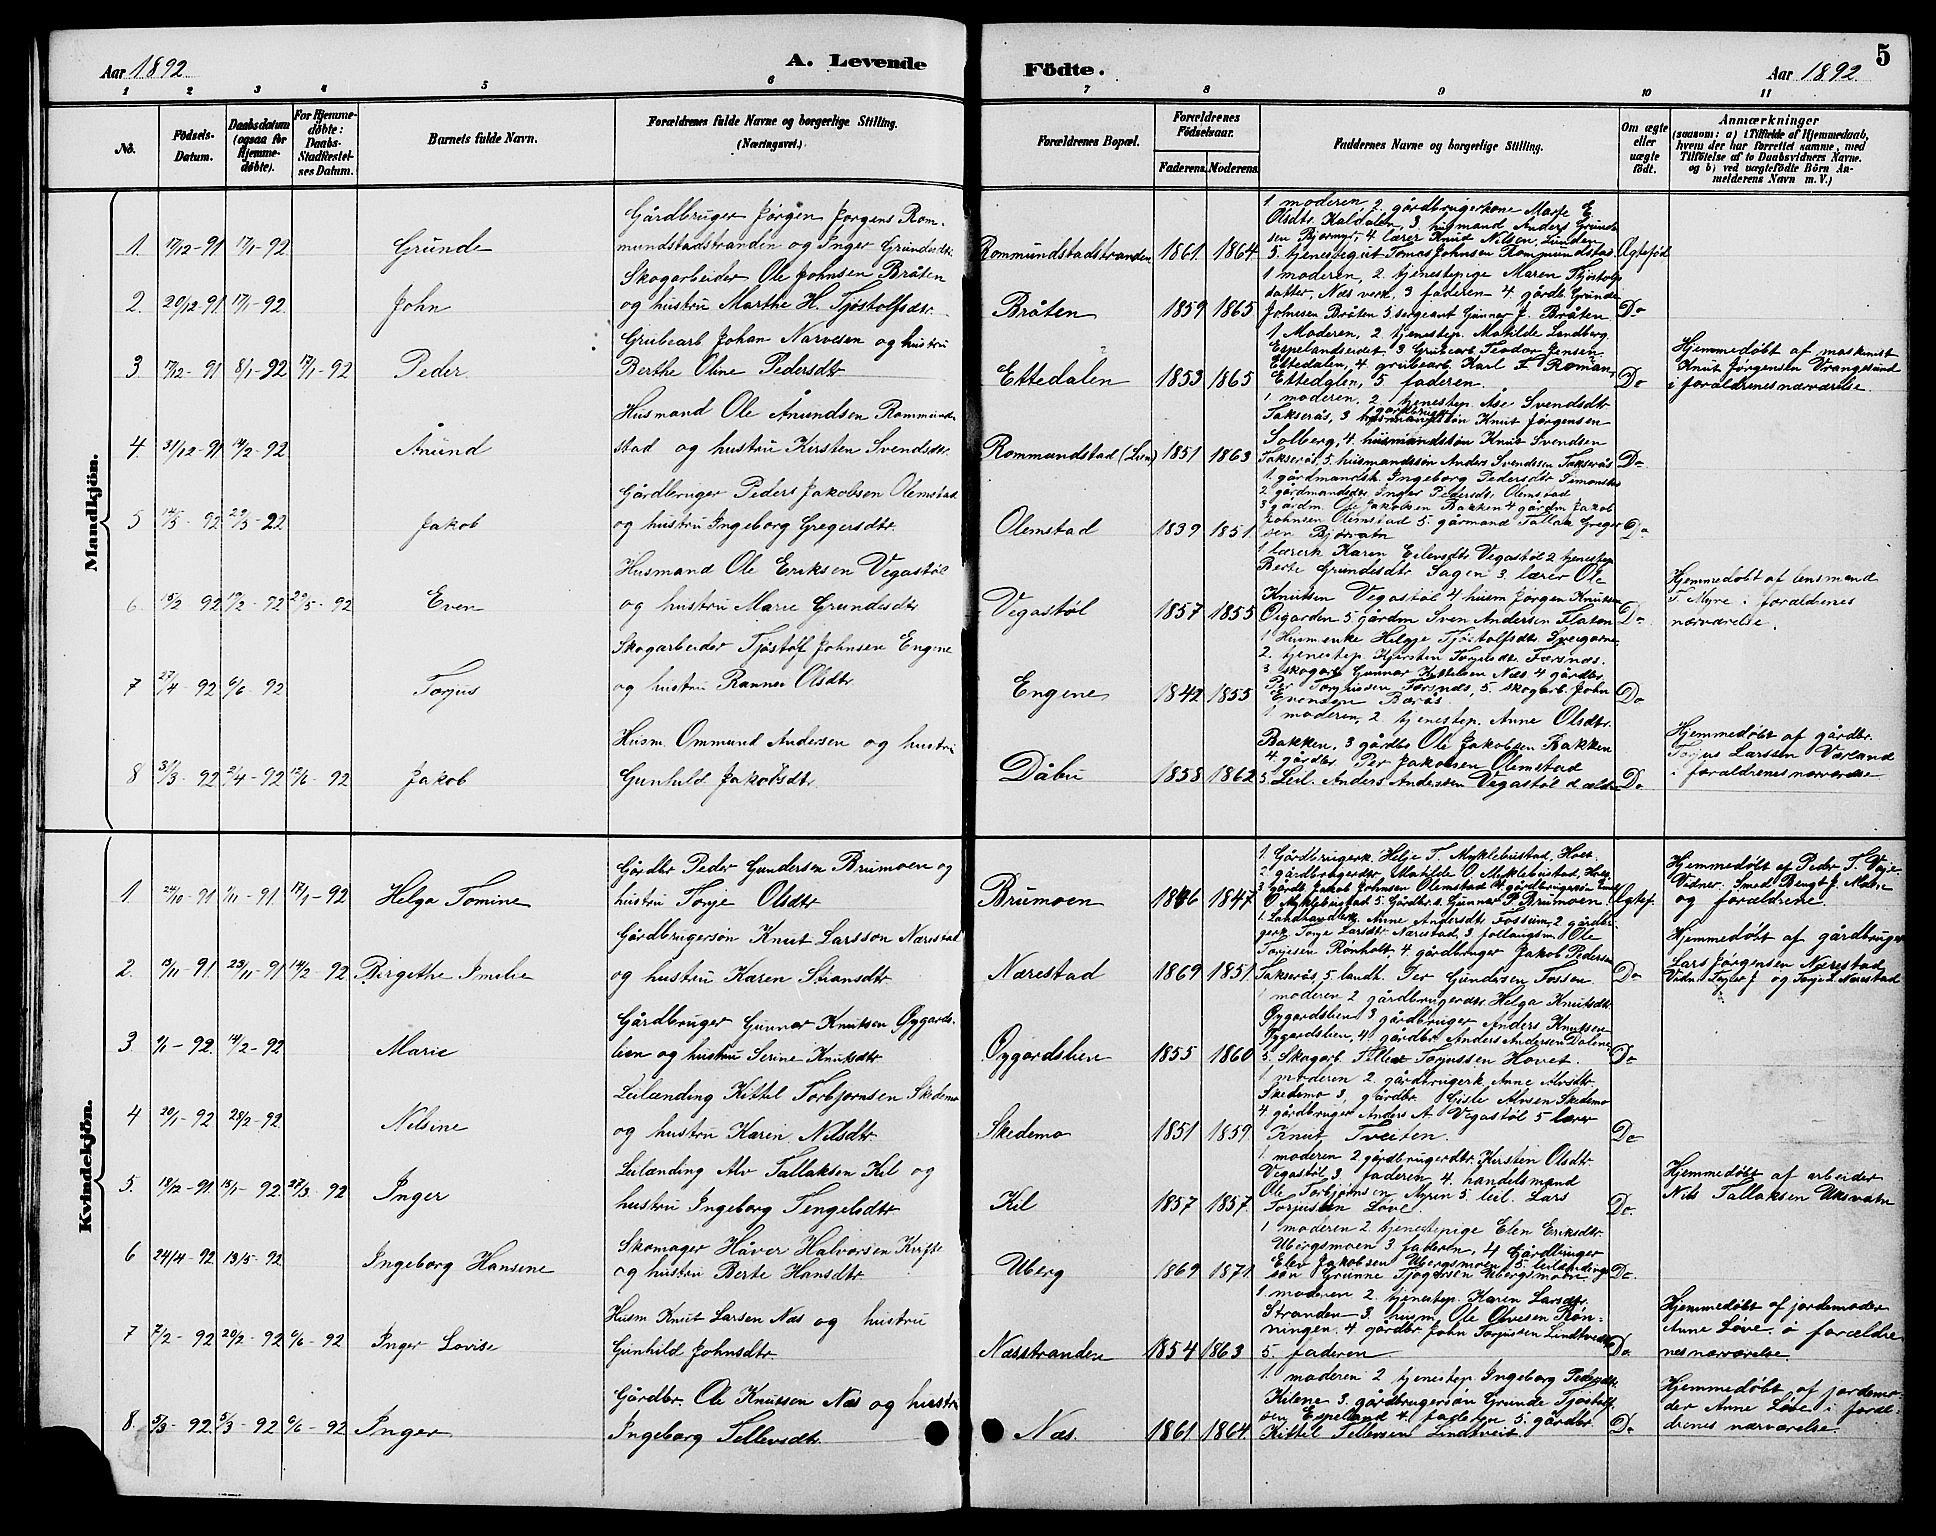 Aar 1892
A. Levende
Födte.
Aar 1892
5
1 2 3 4 5 6 7 8 9 10 11
No.
Födsels-
Datum.
Daabsdatum
(ogsaa for
Hjemme-
døbte).
For Hjemme-
døbte:
Daabs-
Stadfestel-
ses Datum.
Barnets fulde Navn.
Forældrenes fulde Navne og borgerlige Stilling.
(Næringsvei.)
Forældrenes Bopæl.
Forældrenes
Födselsaar.
Faderens. Moderens.
Faddernes Navne og borgerlige Stilling.
Om ægte
eller
uægte
født.
Anmærkninger
(saasom: a) i Tilfælde af Hjemmedaab,
hvem der har forrettet samme, med
Tilföielse af to Daabsvidners Navne.
og b) ved uægtefödte Börn An-
melderens Navn m.V.)
Mandkjön.
1 17/12-91 17/1-92 Grunde
Gårdbruger Jørgen Jørgens Rom-
mundstadstranden og Inger Grundesdtr.
Rommundstadstranden 1861 1864
1 moderen, 2 gårdbrugerkone
Olsdtr. Kaldalen, 3 Anders Grund-
sen 4 lærer Knud Nilsen, Lunden
5. tjenestegut Tomas Johnsen Rommundstad
Ægtefød
2. 20/12-91 17/1-92 John
Skogarbeider Ole Johnsen Bråten
og hustru Marthe H. Tjøstolfsdtr.
Bråten 1859 1865
1 moderen, 2 tjenestepige Maren Tjøstolfs
datter, Næs verk, 3 faderen 4 gårdb. Grunde
Johnsen Bråten 5 sergeant Gunner J. Bråten
Do
3 17/12-91 8/1-92 17/1-92 Peder
Grubearb Johan Narvesen og hustru
Berthe Oline Pedersdtr
Ettedalen 1853 1865
1 Moderen, 2 tjenestep. Matilde Landberg
Espelandseidet, 3 Grubearb. Teodor Jensen
Ettedalen, 4 grubearb. Karl F. Roman,
Ettedalen, 5 faderen.
Do
Hjemmedøbt af maskinist
Knut Jørgensen Vrangesund
i forældrenes nærværelse
4. 31/12-91 14/2-92 Ånund
Husmand Ole Ånundsen Rommund-
stad og hustru Kirsten Svendsdtr.
Rommundstad (Lien) 1851 1863
1 moderen, 2 tjenestep. Åse Svendsdtr
Takserås, 3 gårdbruger Knut Jørgensen
Solberg, 4. husmandsøn Knut Svendsen
Takserås, 5. husmandsøn Anders Svendsen Takserås
Do
5 14/3-92 29/5-92 Jakob
Gårdbruger Peders Jakobsen Olemstad
og hustru Ingeborg Gregersdtr.
Olemstad 1839 1851
1. gårdmandsk. Ingeborg Pedersdtr Simonstad
2 gårdmandsdtr. Inger Pedersdtr. Olemstad
3 gårdm. Ole Jakobsen Bakken 4 gårdm Jakob
Johnsen Olemstad 5. gårmand Tallak Greger
sen Bjorvatn
Do
6. 15/2 92 19/2-92 29/5-92 Even
Husmand Ole Eriksen Vegastøl
og hustru Marie Grundesdtr
Vegastøl 1857 1855
1 lærerk Karen Eilevsdtr Vegastøl 2 tjenestep
Berte Grundesdtr Sagen 3. lærer Ole
Knutsen Vegastøl 4 husm Jørgen Knutsen
Osgarden 5. gårdm Sven Andersen Flaten
Do
Hjemmedøbt af lensmand
T. Myre i forældrenes
nærværelse.
7 27/4-92 6/6-92 Torjus
Skogarbeider Tjøstof Johnsen Engene
og hustru Rannei Olsdtr
Engene 1842 1855
1 Husmenke Helgje Tjøstolfsdtr.
2. tjenestep. Kjersten Færsnæs.
3 skogarb Gunnar Kittelsen Næs 4 gårdbr.
Per Færsnæs, 5. skogarb John
Evensen
Do
8 31/3-92 3/4-92 12/6-92 Jakob
Husm. Ommund Andersen og hustru
Gunhild Jakobsdtr.
Dåbu 1858 1862
1. moderen, 2 tjenestep. Anne Olsdtr.
Bakken, 3 gårdbr Ole Jakobsen Bakken
4 gårdbr. Per Jakobsen Olemstad
5 Leil. Anders Andersen Vegastøl d. ældre
Do
Hjemmedøbt af gårdbr.
Torjus Larssen Værland
i forældrenes nærværelse
Kvindekjön.
1 24/10-91 1/11-91 17/1-92 Helga Tomine
Gårdbr Peder Gundersen Brumoen og
hustru Torje Olsdtr
Brumoen 1846 1847
1. Gårdbrugerk. Helje T. Myklebustad, Hovt.
2 gårdbrugerdtr. Matilde O Myklebustad, Holt
3 Gårdb Jakob Johnsen Olemstad 4 gårdbrugersøn
O Myklebustad 5. Gårdbr.s. Gunnar P. Brumoen
Ægtef.
Hjemmedøbt af Peder T. Veje
Vidner. Smed Bengt J. Moene
og forældrene.
2. 13/11-91 23/11-91 14/2-92 Birgithe Emelie
Gårdbrugersøn Knut Larsson Nærestad
og hustru Karen Stiansdtr
Nærestad 1869 1851
1 Landhandlerk. Anne Andersdtr Fosseim, 2 gårdbr-
gerk Torje Larsdtr Nærestad, 3. Ole
Torjesen Rønholt, 4. gårdbruger Jakob Pedersen
Takserås, 5. landh. Per Gundersen Fossen
Do
Hjemmedøbt af gårdbruger
Lars Jørgensen Nærestad
Vidn: Inger J. og Torje L. Nærestad
3 1/1-92 14/2-92 Marie
Gårdbruger Gunnar Knutsen Øygards-
lien og hustru Serine Knutsdtr
Øygardslien 1855 1860
1 moderen 2 gårdbrugerdtr Helga Knutsdtr
Øygardslien 3 gårdbruger Anders Knutsen
Øygardslien, 4 gårdbr. Anders Andersen Dalene
5. Skogarb. Tellef Torjussen Hovet.
Do
4 20/1-92 28/2-92 Nilsine
Leilænding Kittil Torbjørnsen Skedemo
og hustru Karen Nilsdtr.
Skedemo 1851 1859
1 moderen 2. gårdbrugerk, Anne Alvsdtr.
Skedemo 3, gårdbr. Gisle Alvsen Skedemo
4 gårdbruger Anders A Vegastøl 5 lærer
Knut Tveiten.
Do
5. 18/12-91. 13/1-92 27/3-92 Inger
Leilænding Alv Tallaksen Kil og
hustru Ingeborg Tengelsdtr.
Kil 1857 1857
1. moderen 2 gårdbrugerdtr. Kirsten Olsdtr
Vegastøl 3. faderen, 4. handelsmand
Ole Torbjørnsen Myren 5. leil. Lars
Torjussen Løve.
Do.
Hjemmedøbt af arbeider
Nils Tallaksen Uksvatn
6 24/4-92 13/5-92 Ingeborg Hansine
Skomager Håver Halvorsen
og hustru Berte Hansdtr.
Uberg 1869 1871
1 moderen 2. tjenestepige Elen Eriksdtr.
Ubergsmoen 3 faderen, 4 Gårdbruger
Elev Jakobsen Ubergsmoen, 5 leilændings
søn Grunne Ubergsmoen.
Do
7 7/2-92 20/2-92 6/6-92 Inger Lovise
Husm Knut Larsen Næs og hustru
Gunhild Johnsdtr.
Næsstranden 1854 1863
1. moderen 2. tjenestep. Karen Larsdtr.
Stranden 3. husm. Ole Olvesen Røn-
ningen. 4 gårdbr John Torjussen Lindtveit
5. faderen
Do.
Hjemmedøbt af jordemoder
Anne Løve i forældre
nes nærværelse.
8. 5/3-92 5/3-92 6/6-92 Inger
Gårdbr. Ole Knutssen Næs og hustru
Ingeborg Tellevsdtr.
Næs. 1861 1864
1. moderen 2 tjenestep Ingeborg Pedersdtr.
Kilene 3. gårdbrugersøn Grunde Tjøstolf
sen Espeland 4. faderen 5. gårdbr.
Kittil Tellevsen Lindtveit.
Do
Hjemmedøbt af jordemo-
der Anne Løve i foræl-
drenes nærværelse.